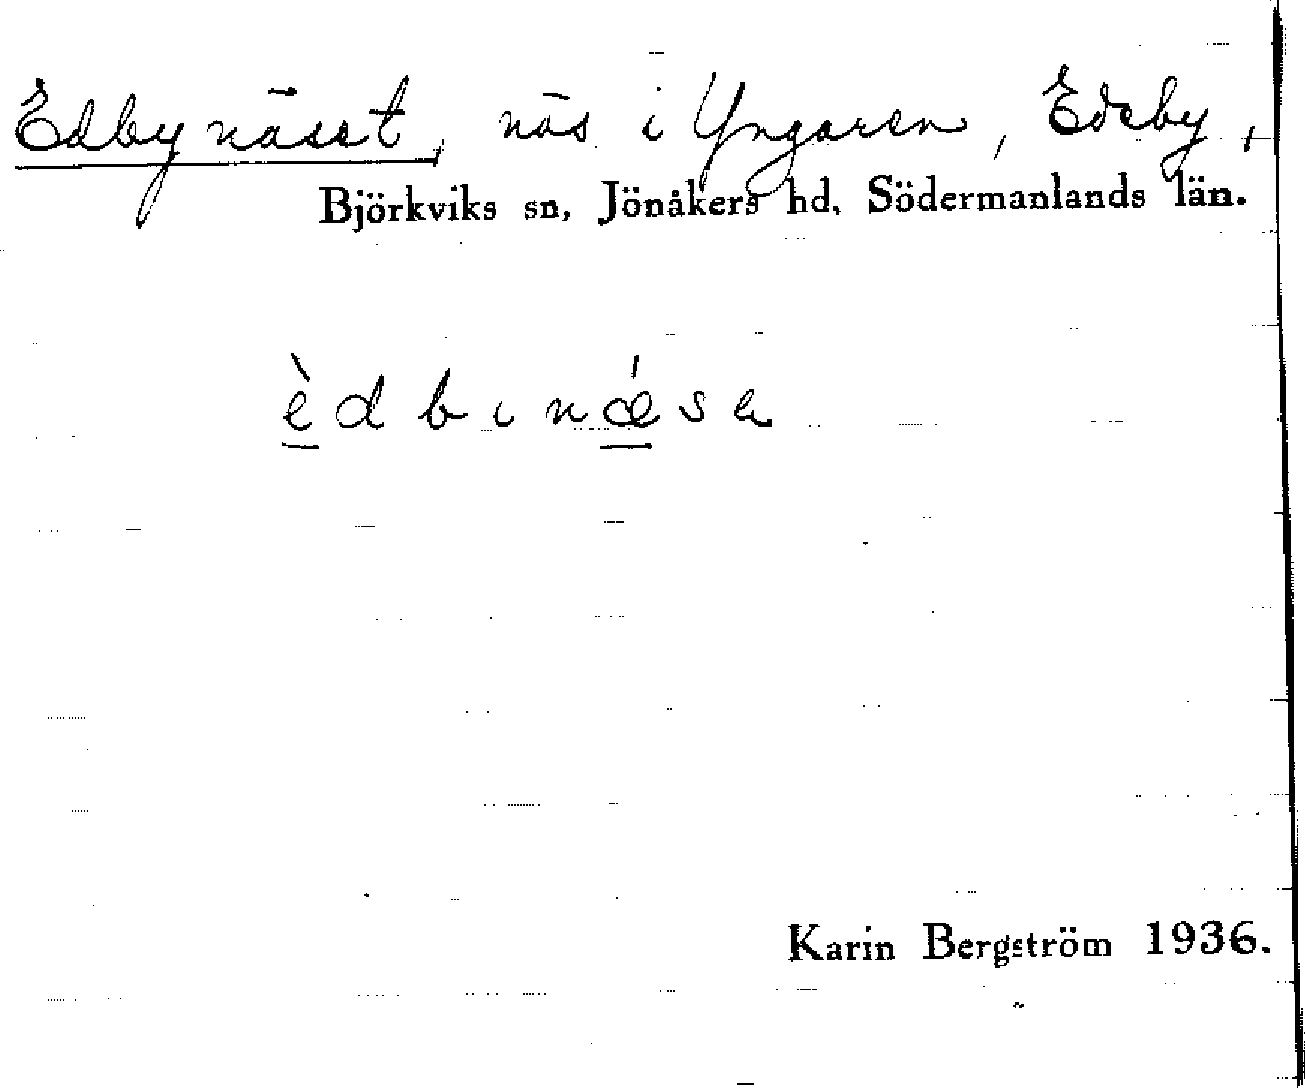 Edbynäset, näs i Yngaren, Edeby,
Björkviks sn, Jönåkers hd, Södermanlands län.
èdbɩnǽsa
Karin Bergström 1936.